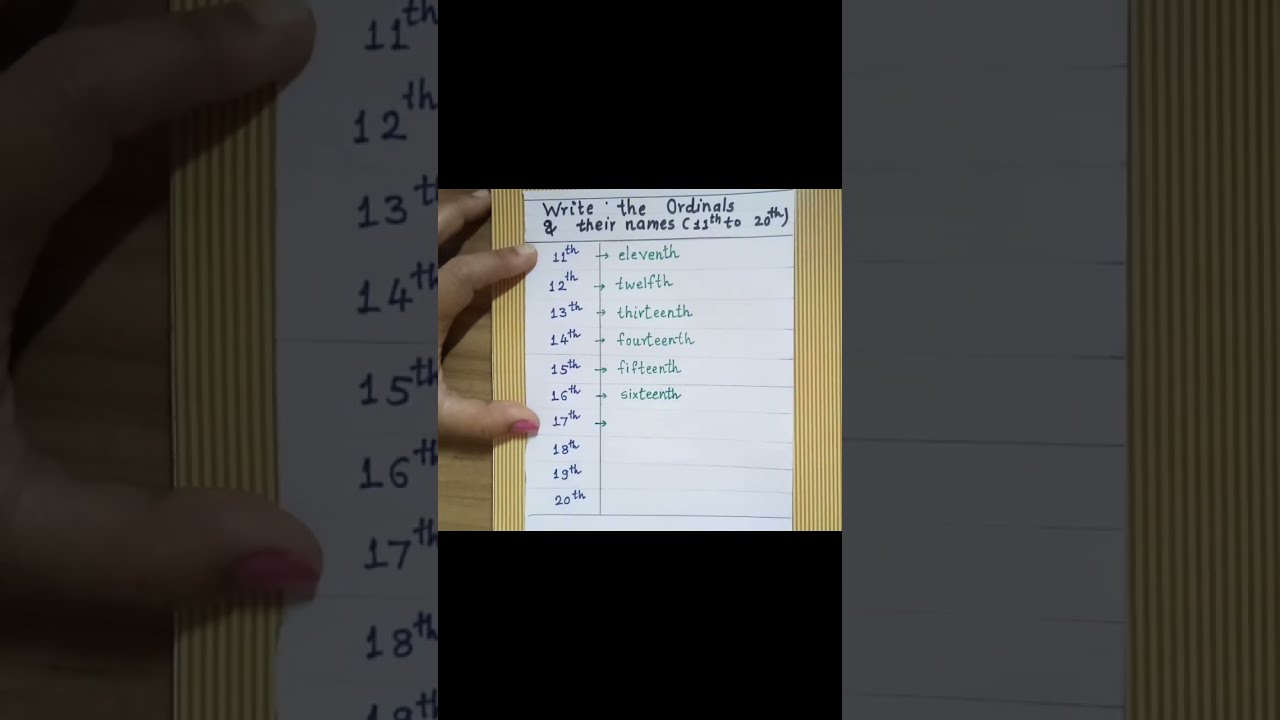 Write the Ordinals
& their names (11th to 20th)
11th → eleventh
12th → twelfth
13th → thirteenth
14th → fourteenth
15th → fifteenth
16th → sixteenth
17th →
18th
19th
20th